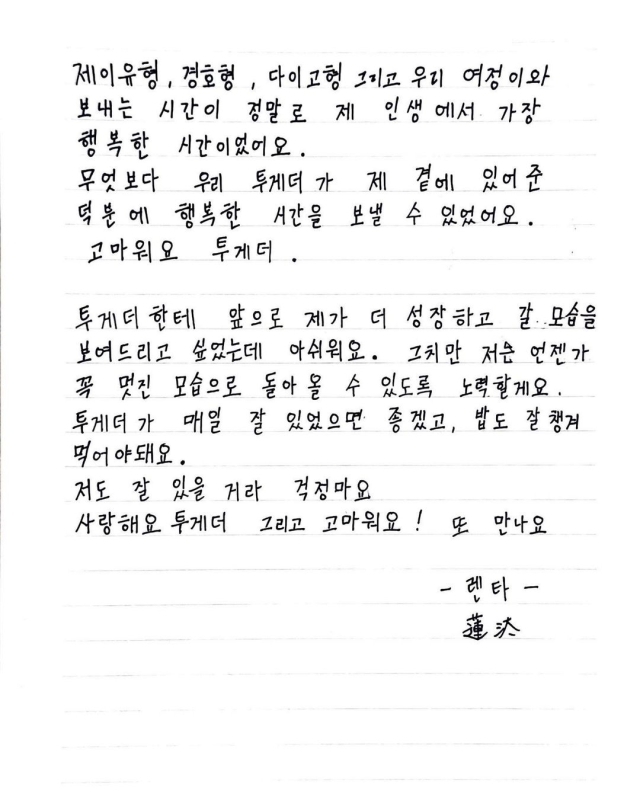 제이유형, 경호형, 다이고형 그리고 우리 여정이와
보내는 시간이 정말로 제 인생에서 가장
행복한 시간이었어요.
무엇보다 우리 투게더가 제 곁에 있어준
덕분에 행복한 시간을 보낼 수 있었어요.
고마워요 투게더.
투게더한테 앞으로 제가 더 성장하고 갈 모습을
보여드리고 싶었는데 아쉬워요. 그치만 저는 언젠가
꼭 멋진 모습으로 돌아올 수 있도록 노력할게요.
투게더가 매일 잘 있었으면 좋겠고, 밥도 잘 챙겨
먹어야돼요.
저도 잘 있을 거라 걱정마요
사랑해요 투게더 그리고 고마워요! 또 만나요
- 렌타 -
蓮汰